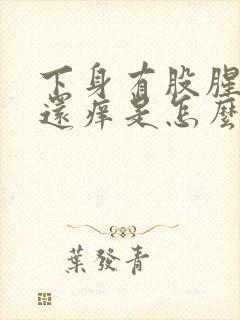 下身有股腥
還痒是怎麼
葉發青